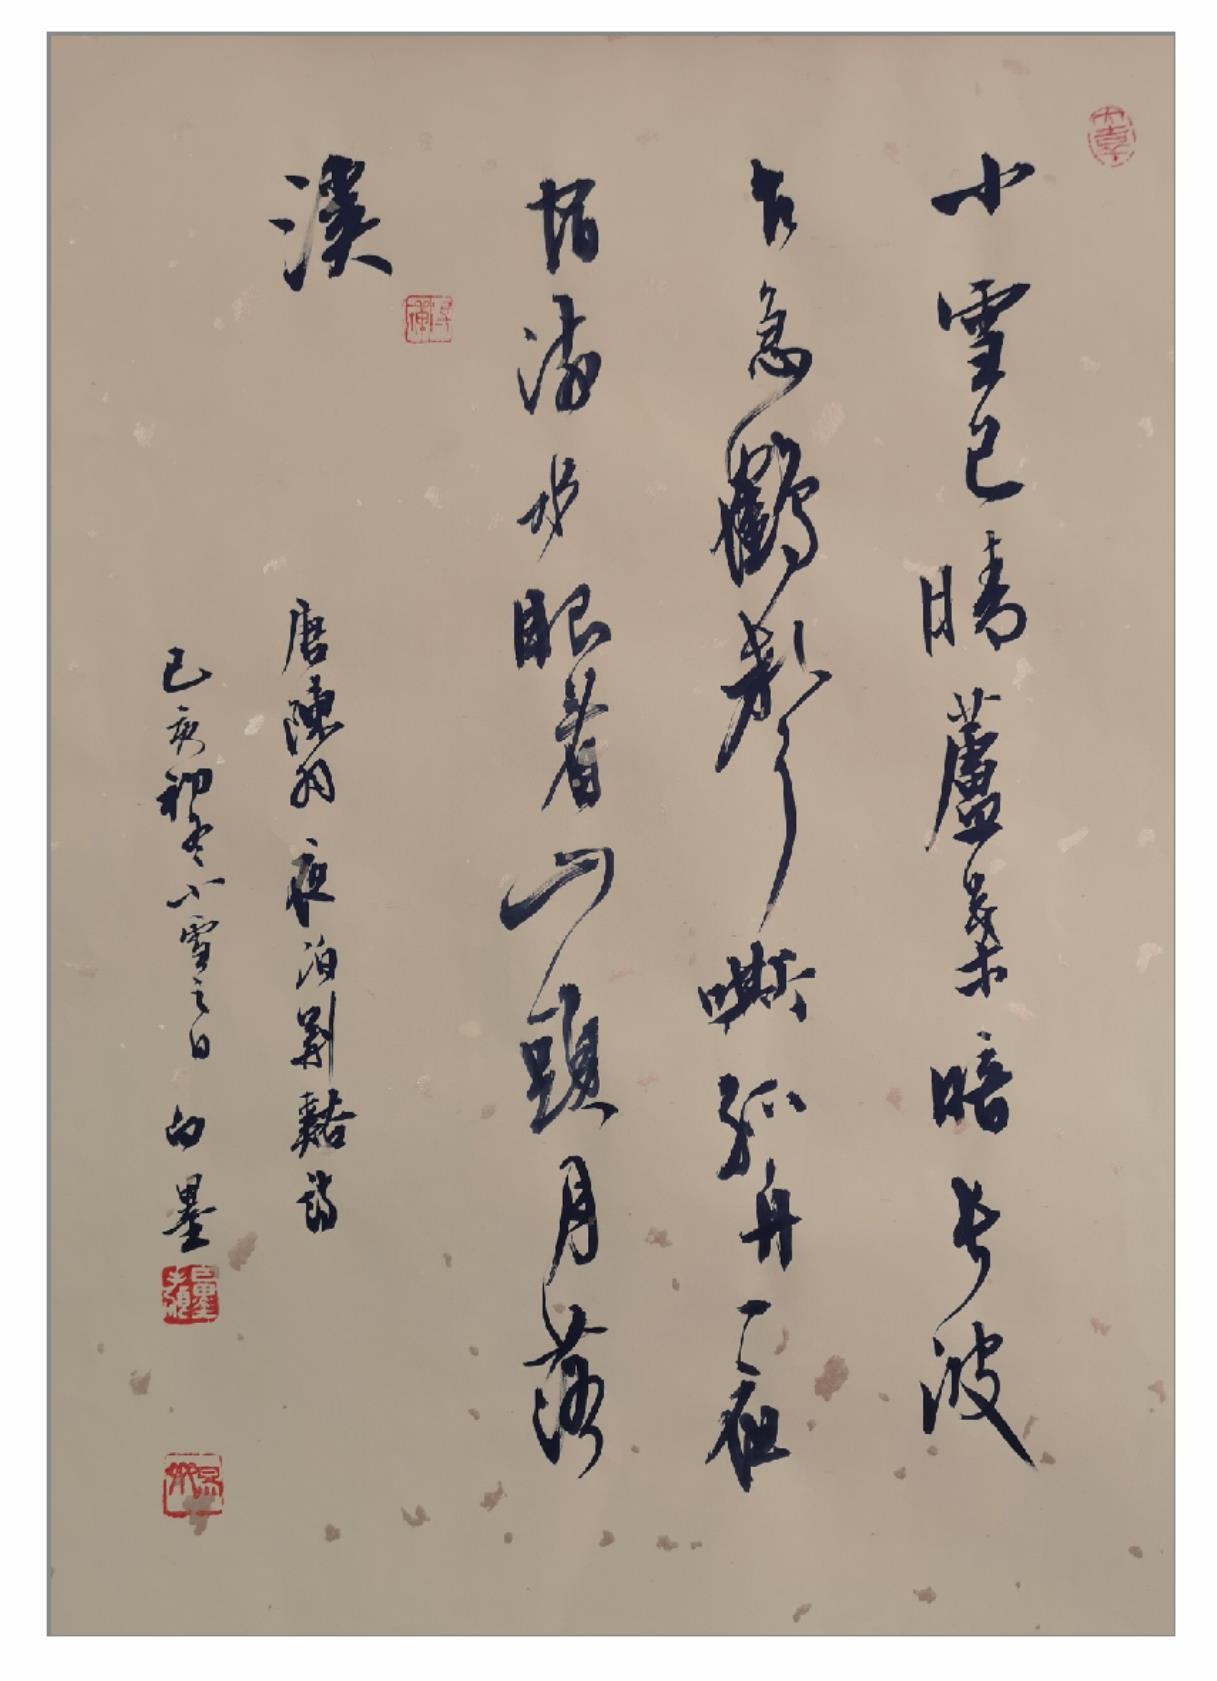 小雪已晴蘆葉暗長波
乍急鶴聲嘶孤舟一夜
宿流水眼看山頭月落
溪
唐陳羽夜泊荊谿詩
己亥初冬小雪之日 墨